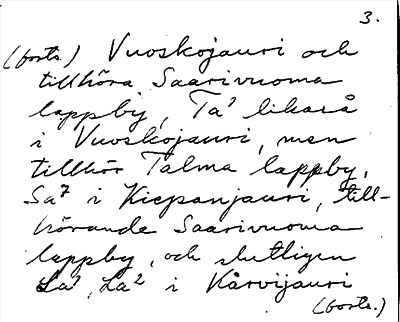 3.
(forts.) Vuoskojauri och
tillhöra Saarivuoma
lappby, Ta¹ likaså
i Vuoskojauri, men
tillhör Talma lappby,
Sa⁷ i Kiepanjauri, till-
hörande Saarivuoma
lappby, och slutligen
La¹, La² i Kårvijauri
(forts.)